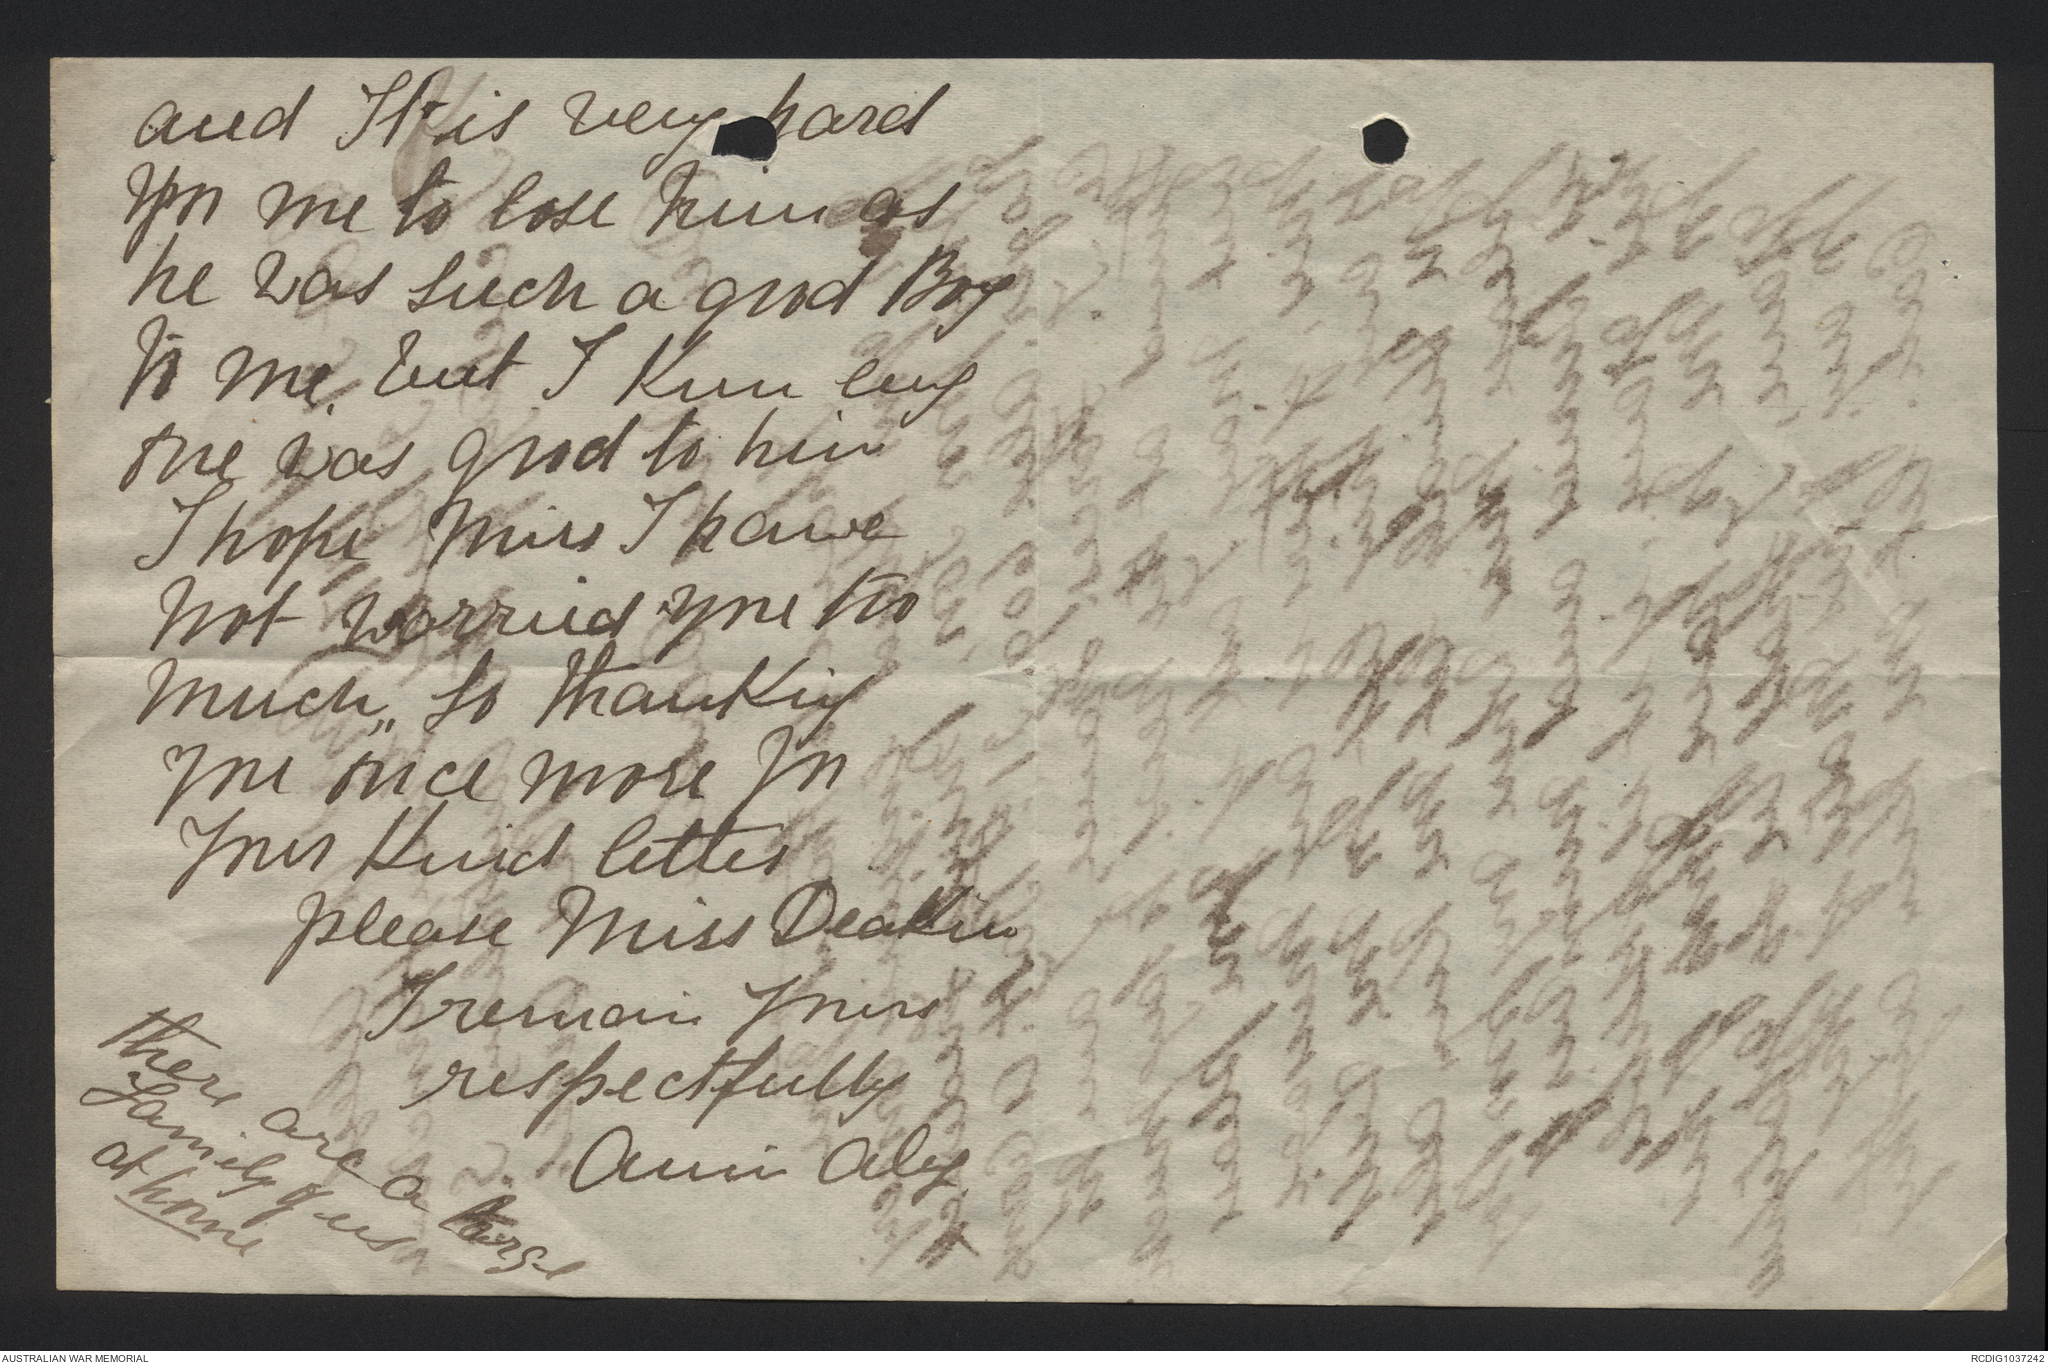 and It is very hard
upon me to lose him as
he was such a good Boy
to me, but I know evy
one was good to him
I hope Miss I have
not worried you too
much,, so thanking
you once more for
your Kind letter
please Miss Deakin
I remain yours
respectfully
Annie Aley.
there are a large
family of us
at home
AUSTRALIAN WAR MEMORIAL
RCDIG1037242